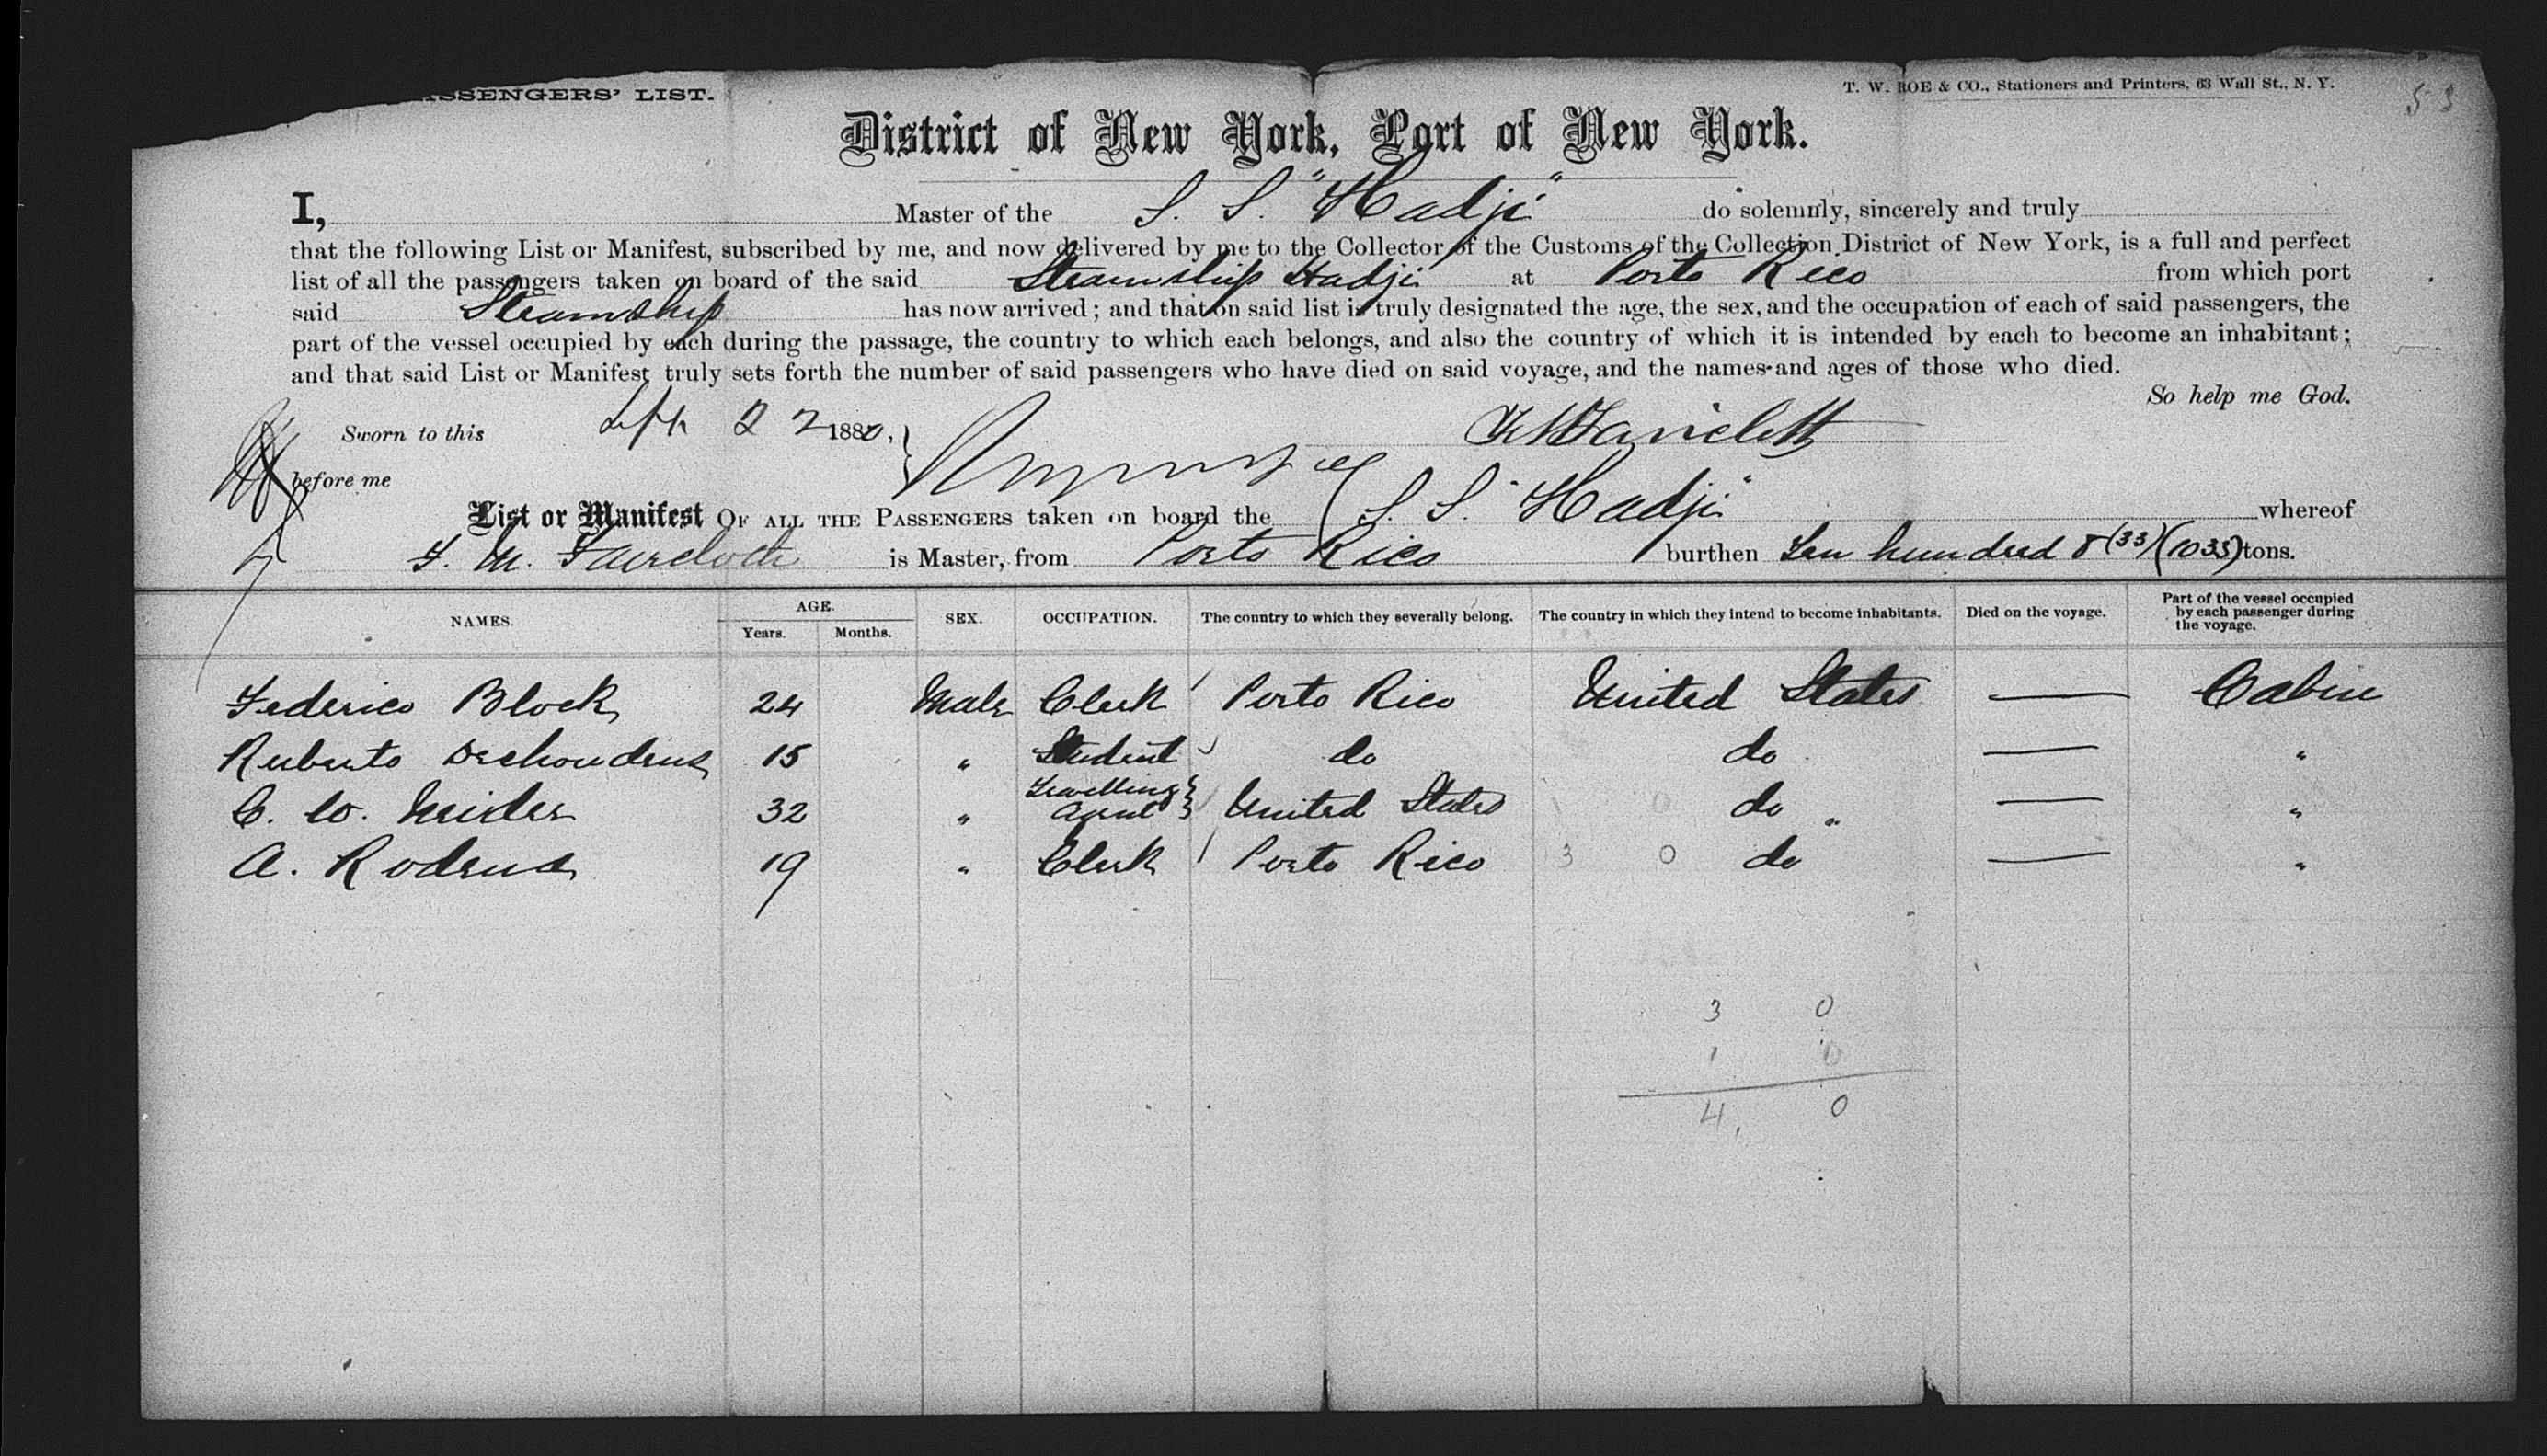 PASSENGERS' LIST.
T. W. ROE & CO., Stationers and Printers, 63 Wall St., N. Y.
53
District of New York, Port of New York.
I, Master of the S. S. "Hadji" do solemnly, sincerely and truly
that the following List or Manifest, subscribed by me, and now delivered by me to the Collector of the Customs of the Collection District of New York, is a full and perfect
list of all the passengers taken on board of the said Steamship Hadji at Porto Rico from which port
said Steamship has now arrived; and that on said list is truly designated the age, the sex, and the occupation of each of said passengers, the
part of the vessel occupied by each during the passage, the country to which each belongs, and also the country of which it is intended by each to become an inhabitant;
and that said List or Manifest truly sets forth the number of said passengers who have died on said voyage, and the names and ages of those who died.
So help me God.
Sworn to this Sept 22 1880,
before me
List or Manifest OF ALL THE PASSENGERS taken on board the S. S. "Hadji" whereof
F. M. Faircloth is Master, from Porto Rico burthen Ten hundred & (33) (1035) tons.
NAMES. AGE. SEX. OCCUPATION. The country to which they severally belong. The country in which they intend to become inhabitants. Died on the voyage. Part of the vessel occupied by each passenger during the voyage.
Years. Months.
Federico Block 24 Male Clerk Porto Rico United States — Cabin
Ruberto 15 " Student do do — "
C. W. 32 " Travelling Agent United States do " — "
A. 19 " Clerk Porto Rico 3 0 do — "
3 0
1 0
4 0